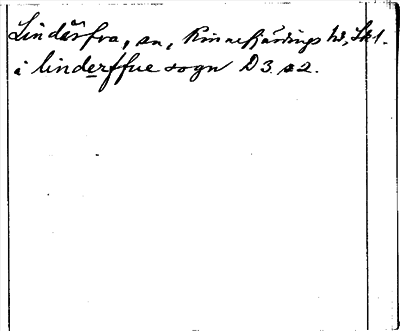 Lindärfva, sn, Kinnefjärdings hd, Sk l.
i linderffue sogn D 3. s 2.